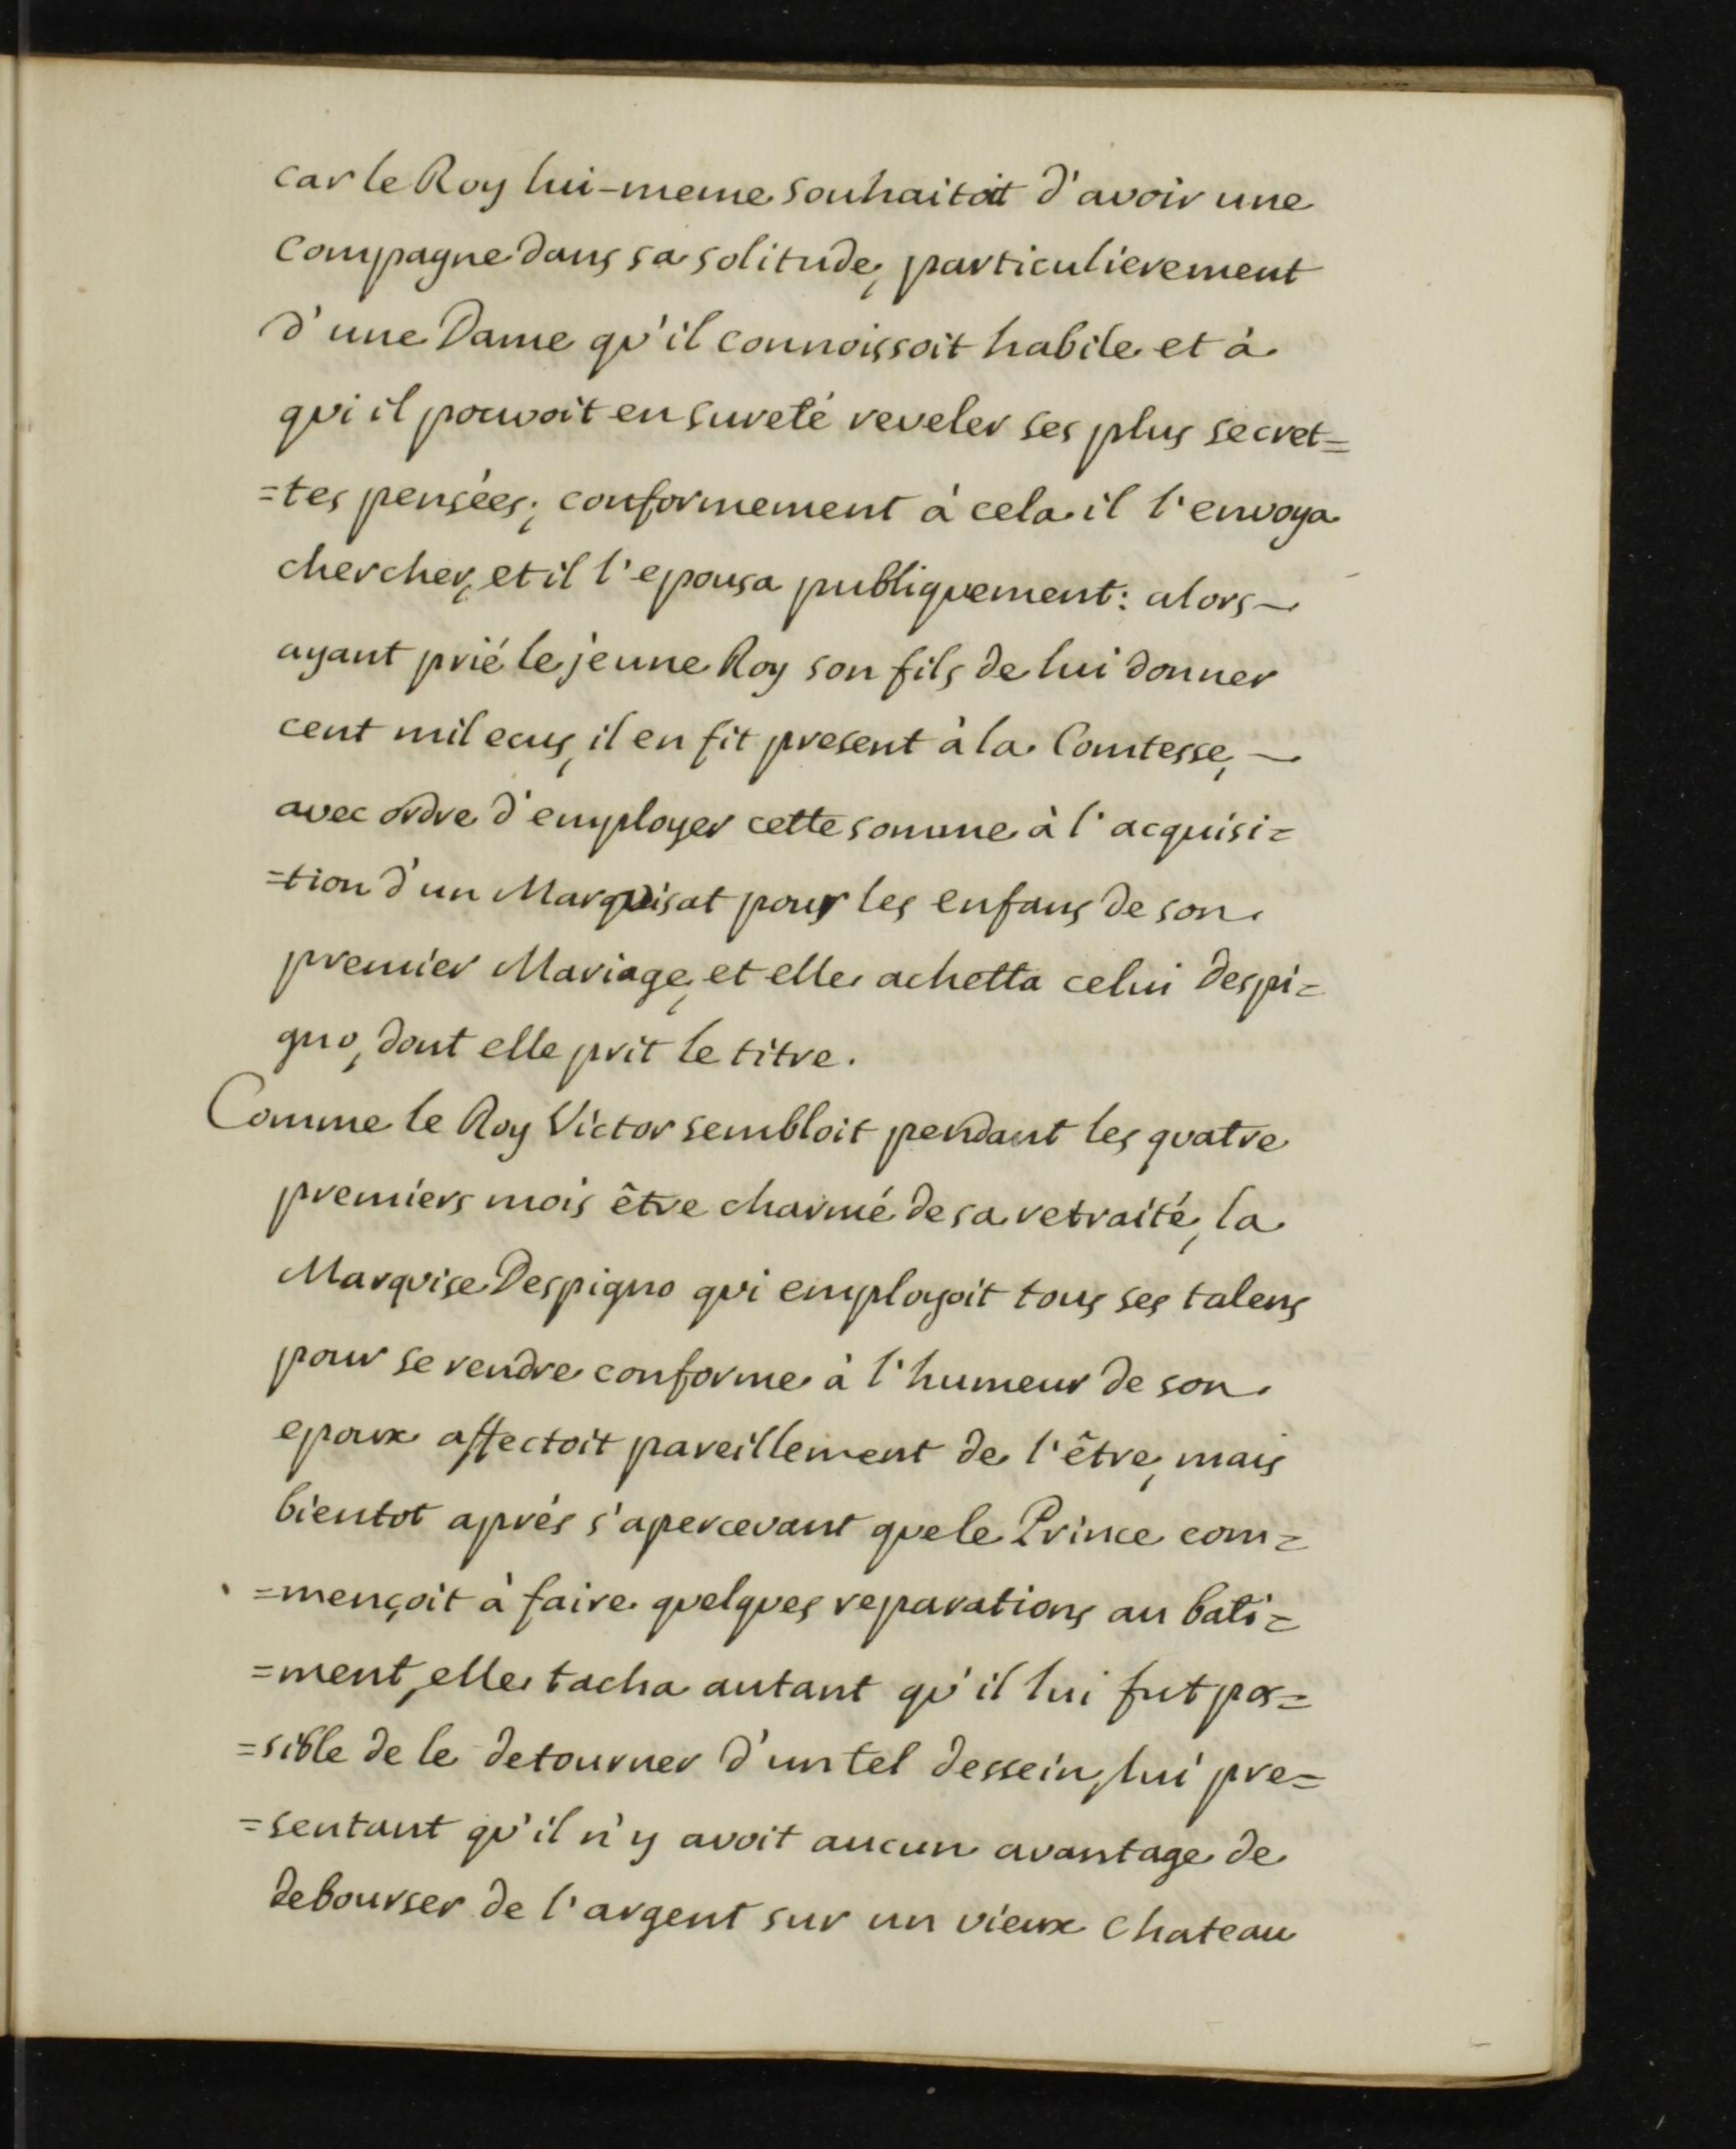 car le Roy lui-meme souhaitoit d'avoir une
Compagne dans sa solitude, particulierement
d'une Dame qu'il connoissoit habile et à
qui il pouvoit en sureté reveler ses plus secret=
=tes pensées; conformement à cela il l'envoya
chercher, et il l'epousa publiquement: alors —
ayant prié le jeune Roy son fils de lui donner
cent mil ecus, il en fit present à la Comtesse, —
avec ordre d'employer cette somme à l'acquisi=
=tion d'un Marquisat pour les enfans de son
premier Mariage, et elle achetta celui despi=
gno, dont elle prit le titre.
Comme le Roy Victor sembloit pendant les quatre
premiers mois être charmé de sa retraité, la
Marquise Despigno qui employoit tous ses talens
pour se rendre conforme à l'humeur de son
epoux affectoit pareillement de l'être, mais
bientot aprés s'apercevant que le Prince com=
=mençoit à faire quelques reparations au bati=
=ment, elle tacha autant qu'il lui fut pos=
=sible de le detourner d'un tel dessein, lui pre=
=sentant qu'il n'y avoit aucun avantage de
debourser de l'argent sur un vieux Chateau